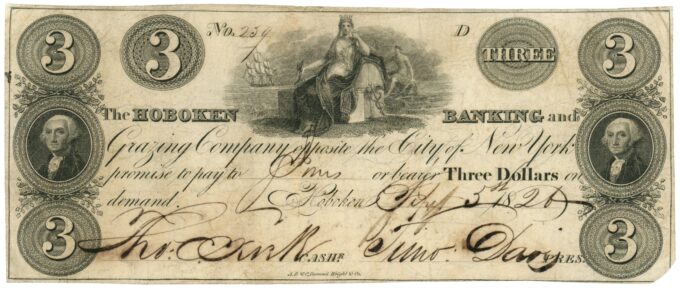 3 3 No. 239 D THREE 3
The HOBOKEN BANKING and
Grazing Company opposite the City of New York
promise to pay to or bearer Three Dollars on
demand. Hoboken Sept 5th 1826
CASHR. Timo. Davis PRES.
3 3